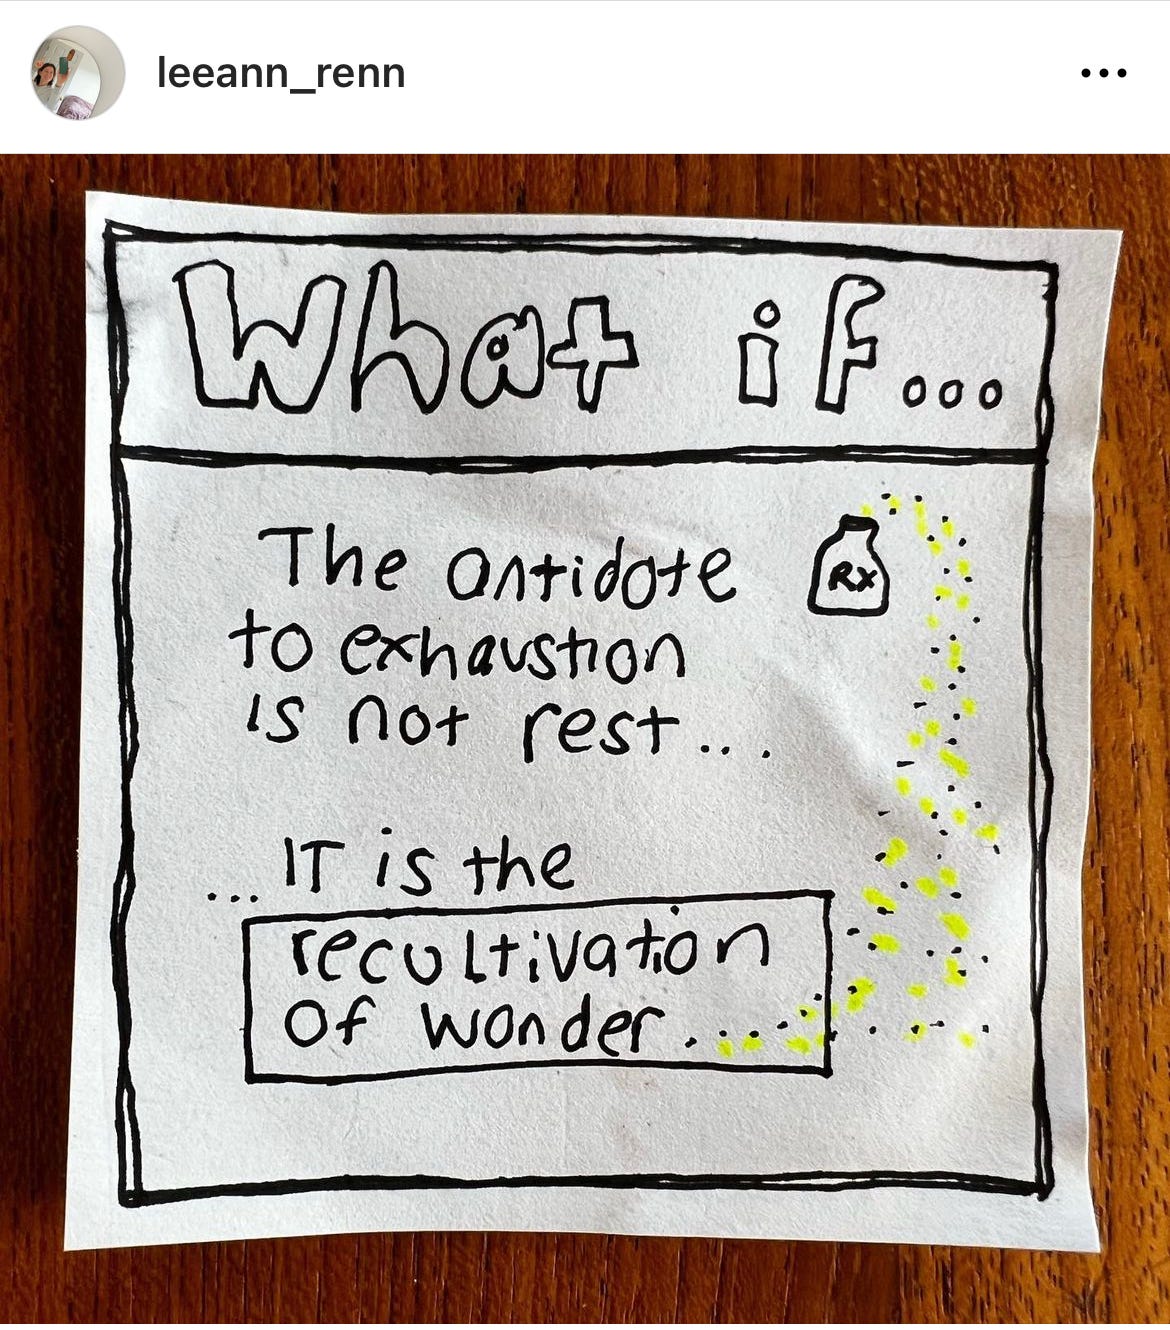 leeann_renn
What if...
The antidote
RX
to exhaustion
is not rest...
...IT is the
recultivation
of wonder....